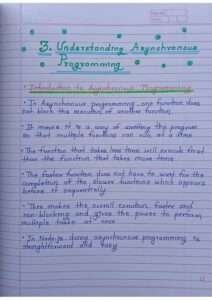 3. Understanding Asynchronous
Programming
• Introduction to Asynchronous Programming
• In Asynchronous programming, one function does
not block the execution of another function
• It means it is a way of writing the program
so that multiple functions can run at a time
• The function that takes less time will execute first
than the function that takes more time
• The faster function does not have to wait for the
completion of the slower functions which appears
before it sequentially
• This makes the overall execution faster and
non blocking and gives the power to perform
multiple tasks at once
• In Node.js doing asynchronous programming is
straightforward and easy